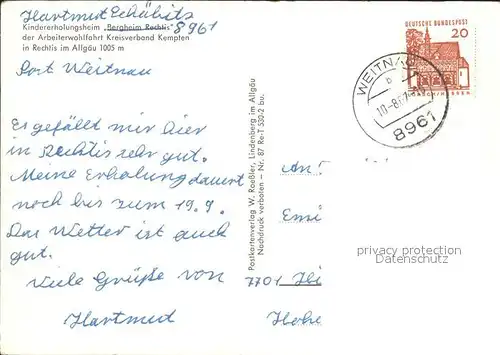 Hartmut Schübitz
Kindererholungsheim „Bergheim Rechtis" 8961
der Arbeiterwohlfahrt Kreisverband Kempten
in Rechtis im Allgäu 1005 m
Post Weitnau
Es gefällt mir hier
in Rechtis sehr gut.
Meine Erholung dauert
noch bis zum 19.9.
Das Wetter ist auch
gut.
Viele Grüße von
Hartmud
Postkartenverlag W. Roeßler, Lindenberg im Allgäu
Nachdruck verboten — Nr. 87 Re-T 530-2 bu.
DEUTSCHE BUNDESPOST
20
WEITNAU
b
8961
An
7701
privacy protection
Datenschutz